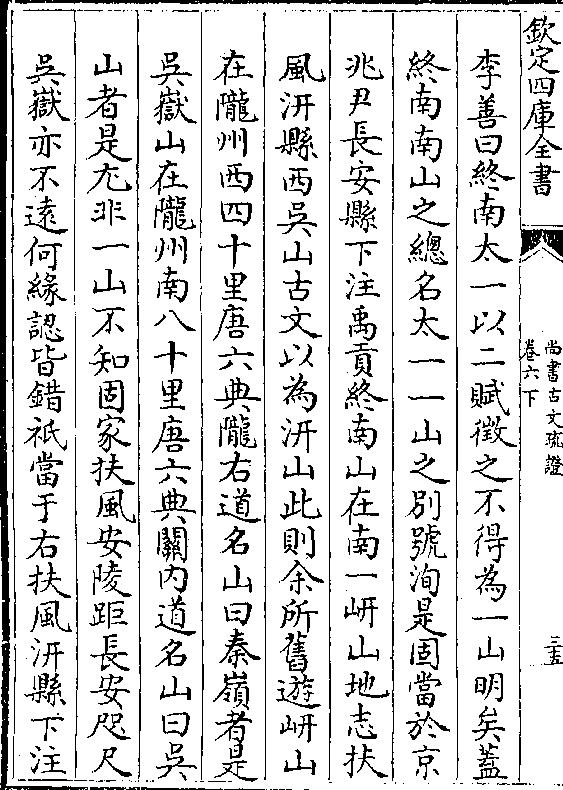 欽定四庫全書
尚書古文疏證
卷六下
三五
李善曰終南太一以二賦徵之不得為一山明矣蓋
終南南山之總名太一一山之別號洵是固當於京
兆尹長安縣下注禹貢終南山在南一岍山地志扶
風汧縣西吳山古文以為汧山此則余所舊遊岍山
在隴州西四十里唐六典隴右道名山曰秦嶺者是
吳嶽山在隴州南八十里唐六典關内道名山曰吳
山者是尢非一山不知固家扶風安陵距長安咫尺
吳嶽亦不遠何緣認皆錯祇當于右扶風汧縣下注